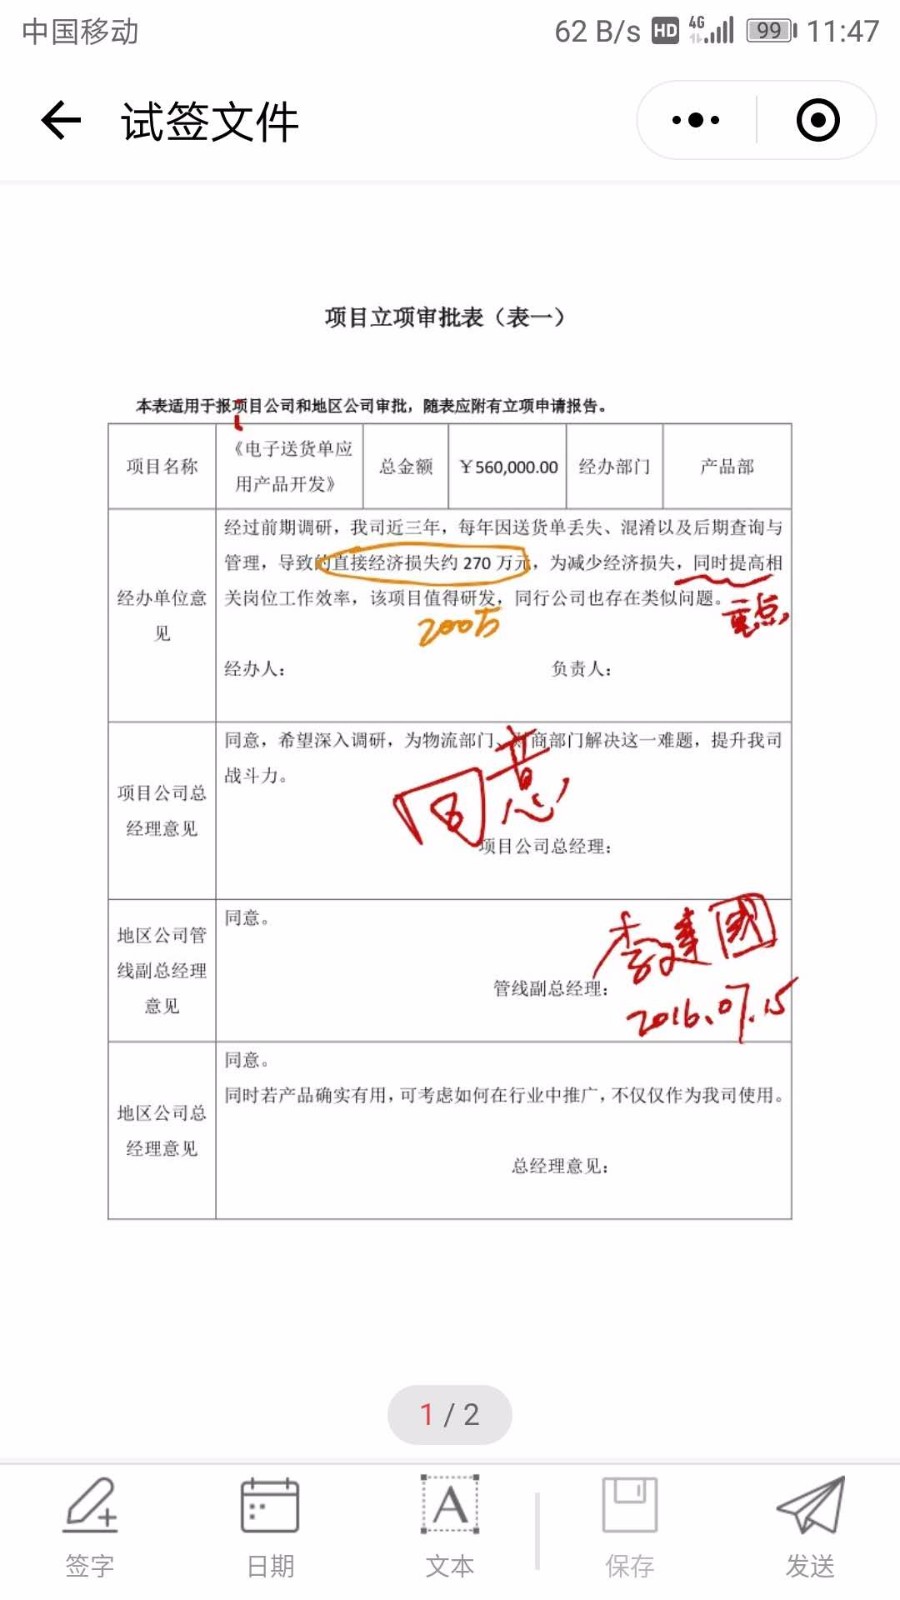 中国移动 62 B/s HD 4G 99 11:47
试签文件
项目立项审批表（表一）
本表适用于报项目公司和地区公司审批，随表应附有立项申请报告。
项目名称
《电子送货单应
用产品开发》
总金额
￥560,000.00
经办部门
产品部
经办单位意
见
经过前期调研，我司近三年，每年因送货单丢失、混淆以及后期查询与
管理，导致的直接经济损失约 270 万元，为减少经济损失，同时提高相
关岗位工作效率，该项目值得研发，同行公司也存在类似问题。
重点
200万
经办人：
负责人：
项目公司总
经理意见
同意，希望深入调研，为物流部门、商部门解决这一难题，提升我司
战斗力。
同意
项目公司总经理：
地区公司管
线副总经理
意见
同意。
李建國
管线副总经理：
2016.07.15
地区公司总
经理意见
同意。
同时若产品确实有用，可考虑如何在行业中推广，不仅仅作为我司使用。
总经理意见：
1 / 2
签字
日期
A
文本
保存
发送